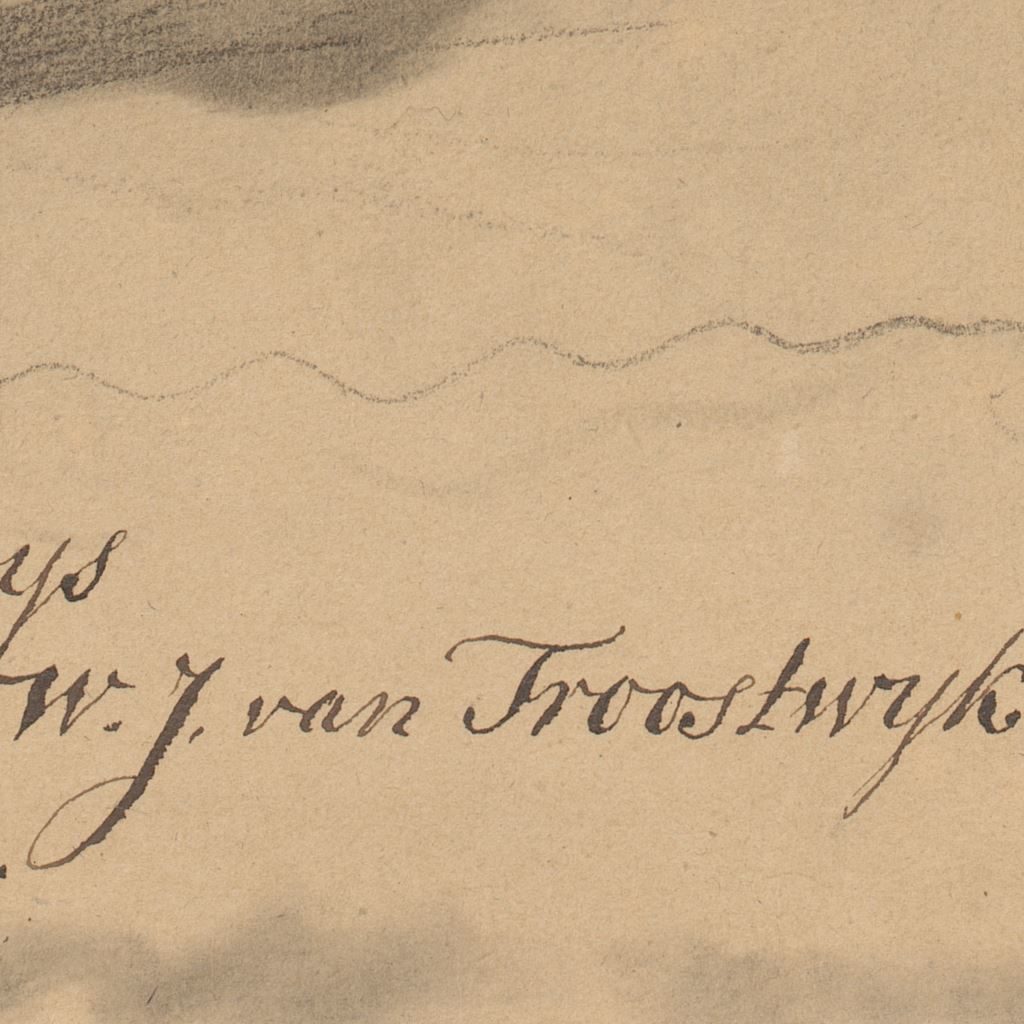 ys
W. J. van Troostwyk